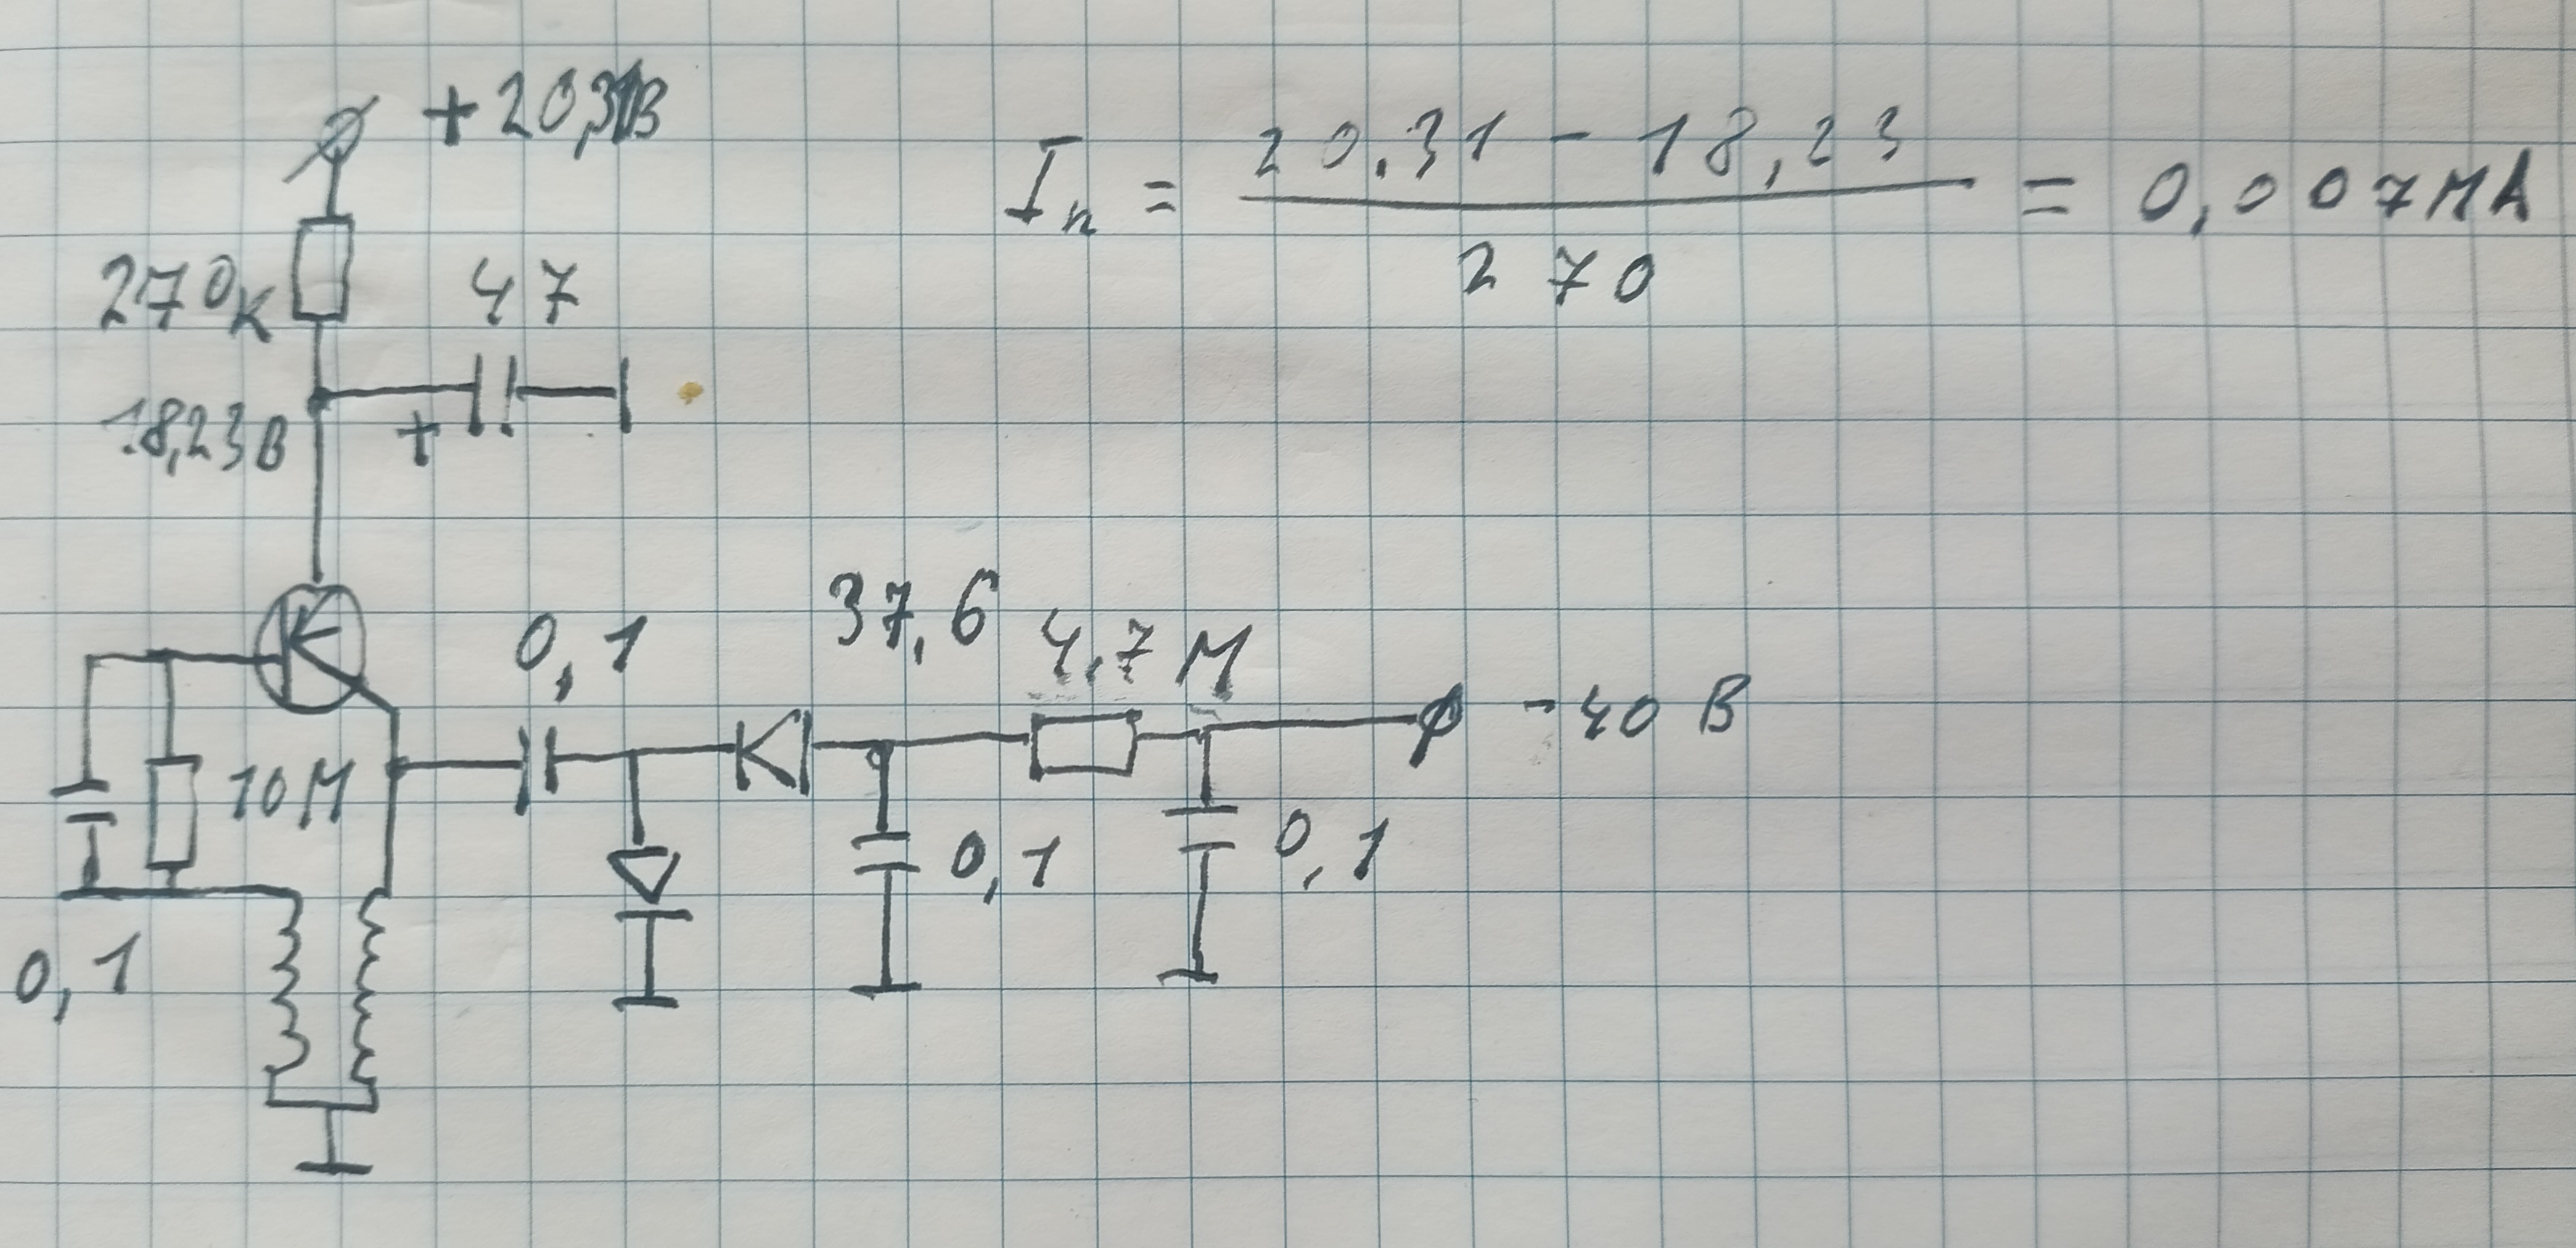 +20,31В
Iп = 20.31 - 18,23 / 270 = 0,007мА
270к
47
18,23В
+
0,1
37,6
4,7 М
- 40 В
10М
0,1
0,1
0,1